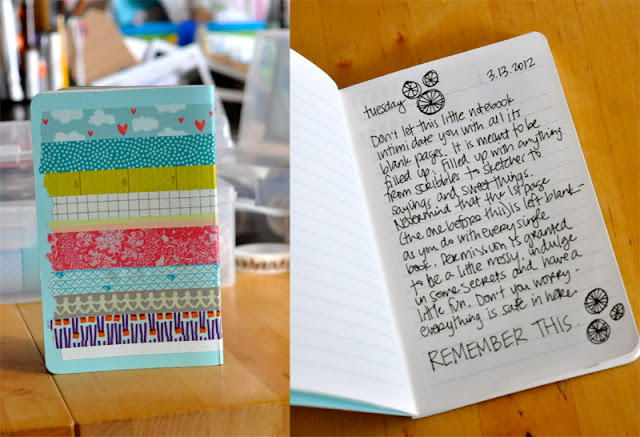 5 6 7
tuesday
3.13.2012
Don't let this little notebook
intimidate you with all its
blank pages. It is meant to be
filled up. Filled up with anything
from scribbles to sketches to
sayings and sweet things.
Nevermind that the 1st page
(the one before this) is left blank -
as you do with every single
book. Permission is granted
to be a little messy, indulge
in some secrets and have a
little fun. Don't you worry -
everything is safe in here.
REMEMBER THIS.